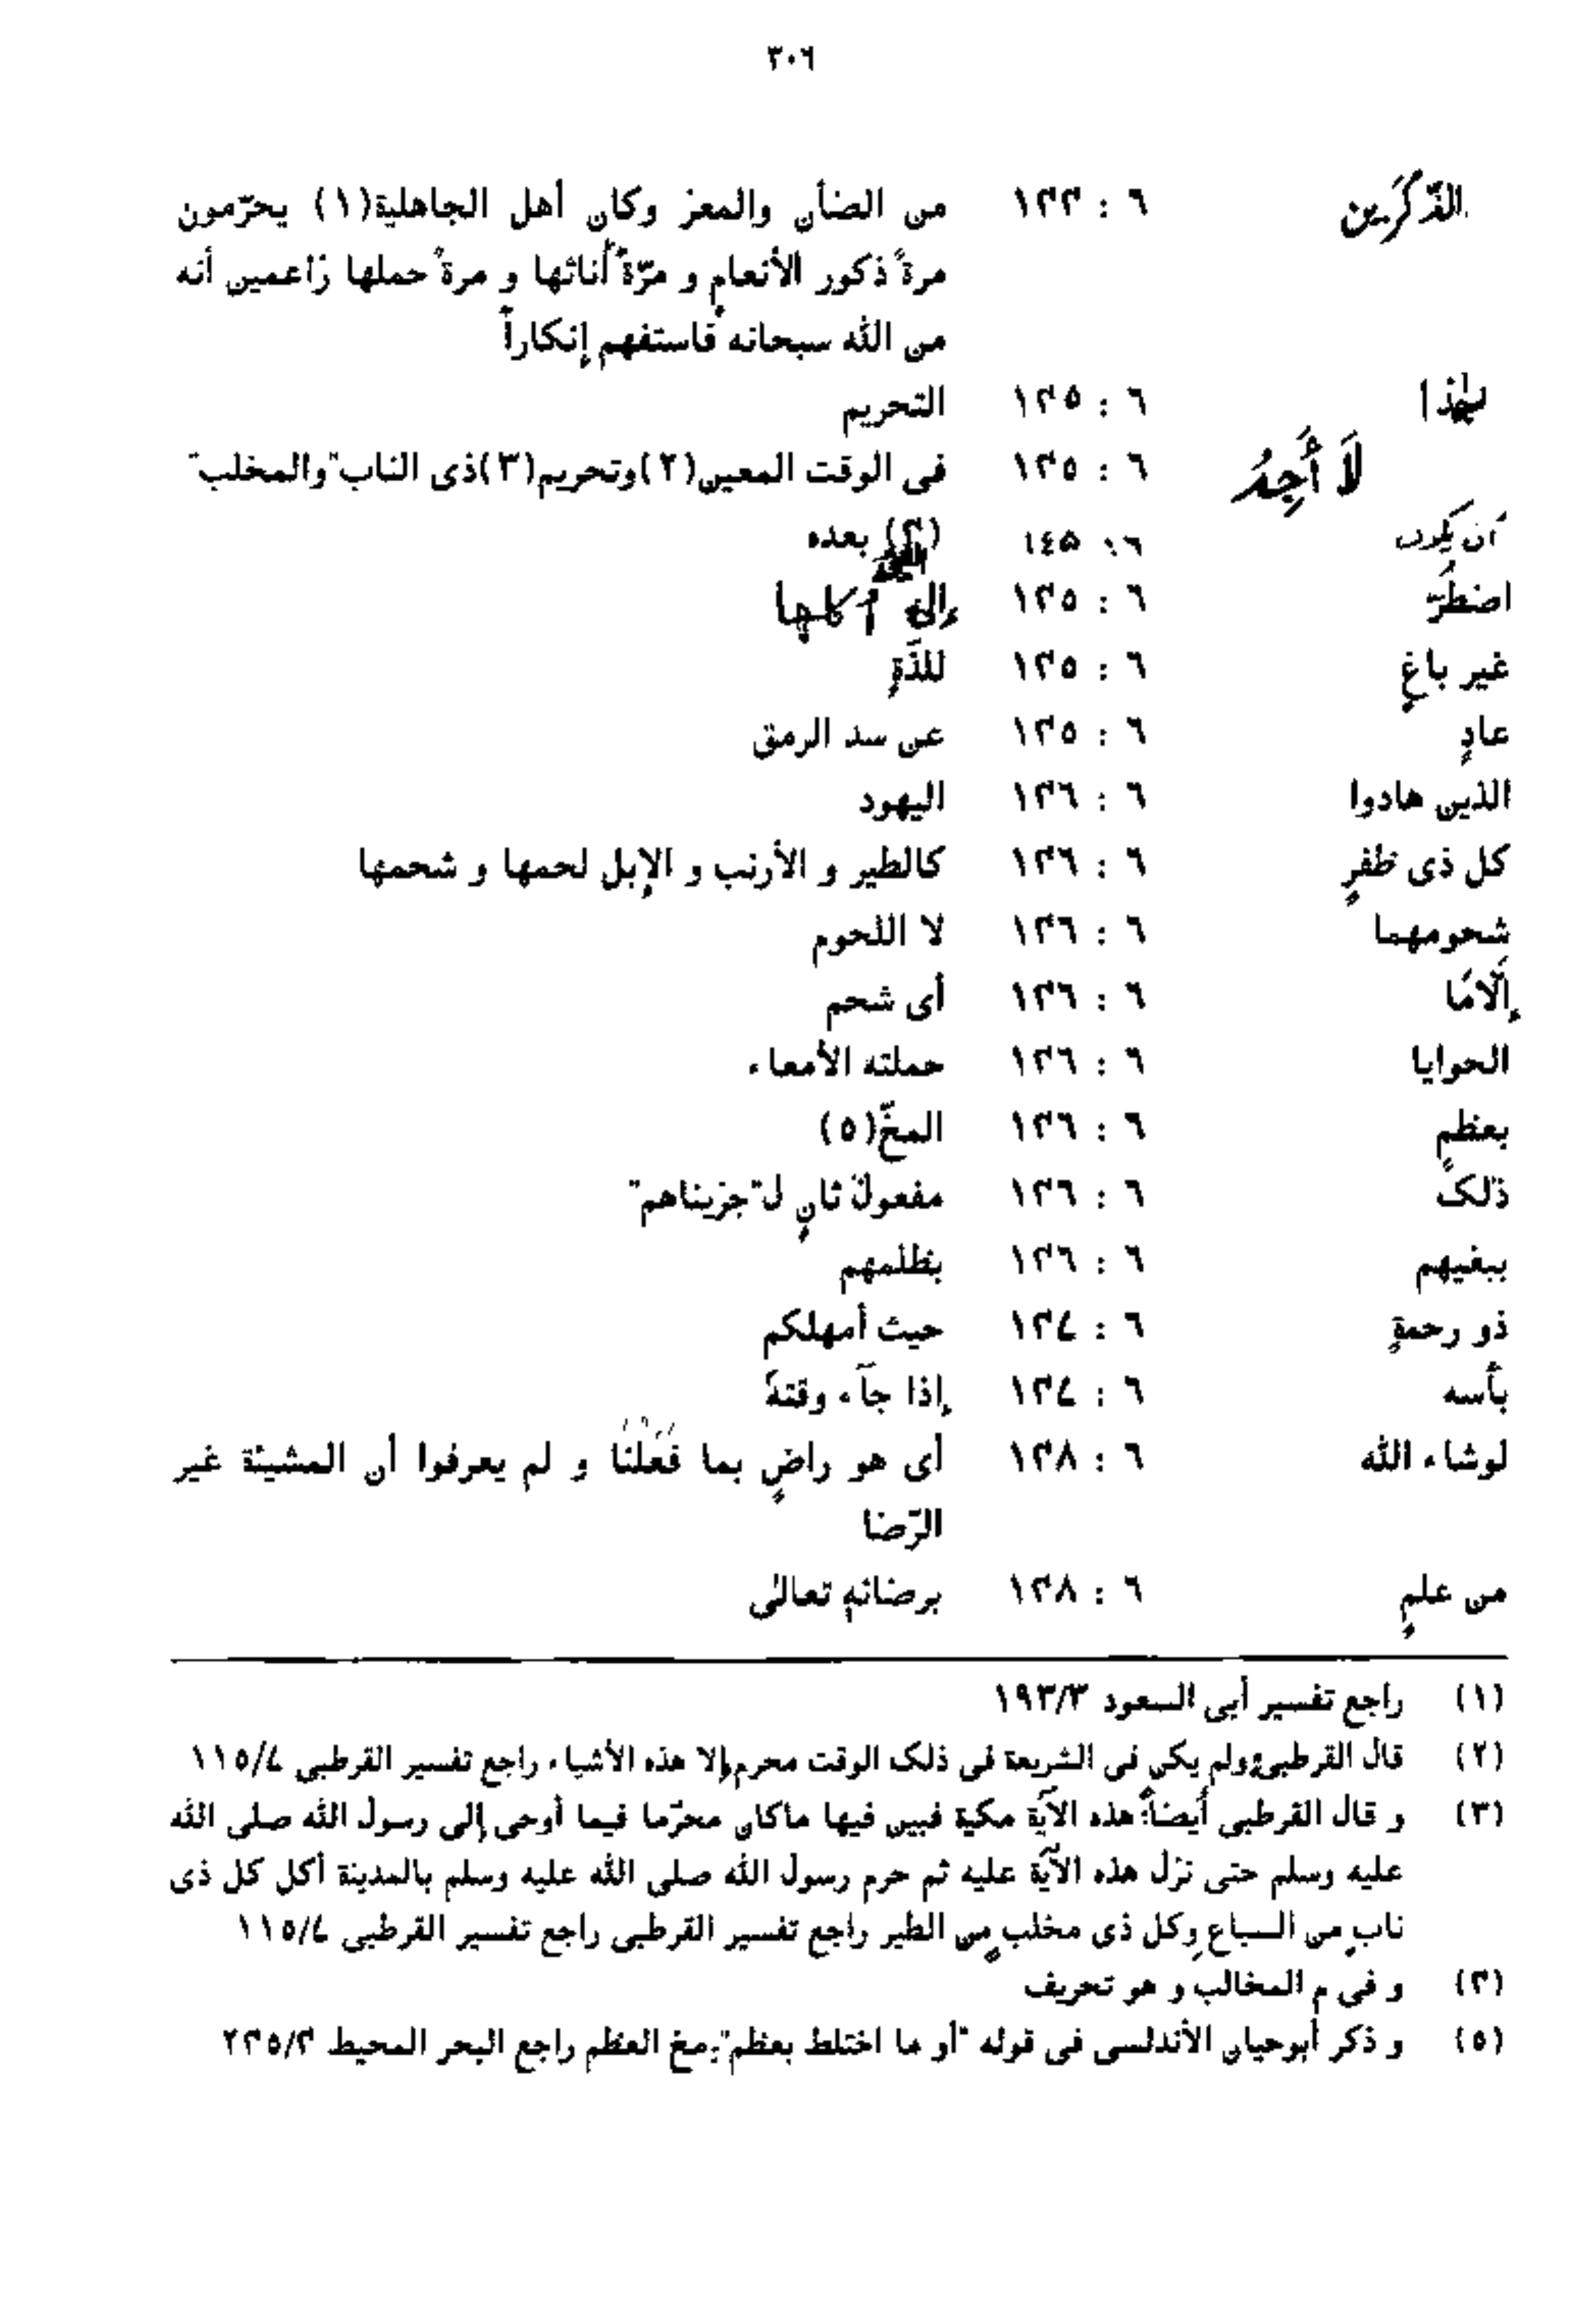 ٣٠٦
الذّكَرَين ٦ : ١٤٤ من الضأن والمعز وكان أهل الجاهلية(١) يحرّمون
مرةً ذكور الأنعام و مرّةً أناثها و مرةً حملها زاعمين أنه
من الله سبحانه فاستفهم إنكاراً
بهٰذا ٦ : ١٤٥ التحريم
لَا أَجِدُ ٦ : ١٤٥ فى الوقت المعين(٢)وتحريم(٣)ذى الناب"والمخلب"
(٤) بعده
أن يكون ٦ : ١٤٥
اضطرّ ٦ : ١٤٥ إلىٰ أكلها
غير باغٍ ٦ : ١٤٥ للذّةٍ
عادٍ ٦ : ١٤٥ عن سد الرمق
الذين هادوا ٦ : ١٤٦ اليهود
كل ذى ظفرٍ ٦ : ١٤٦ كالطير و الأرنب و الإبل لحمها و شحمها
شحومهما ٦ : ١٤٦ لا اللحوم
إلّامَا ٦ : ١٤٦ أى شحم
الحوايا ٦ : ١٤٦ حملته الأمعاء
بعظمٍ ٦ : ١٤٦ المخّ(٥)
ذٰلك ٦ : ١٤٦ مفعول ثانٍ ل"جزيناهم"
ببغيهم ٦ : ١٤٦ بظلمهم
ذو رحمةٍ ٦ : ١٤٧ حيث أمهلكم
بأسه ٦ : ١٤٧ إذا جآء وقتهٗ
لوشاء الله ٦ : ١٤٨ أى هو راضٍ بما فَعَلْنَا و لم يعرفوا أن المشيئة غير
الرّضا
من علمٍ ٦ : ١٤٨ برضائهٖ تعالىٰ
(١) راجع تفسير أبى السعود ١٩٣/٣
(٢) قال القرطبى؛ولم يكن فى الشريعة فى ذلك الوقت محرم إلا هذه الأشياء راجع تفسير القرطبى ١١٥/٧
(٣) و قال القرطبى أيضاً:هذه الآية مكية فبين فيها ماكان محرّما فيما أوحى إلى رسول الله صلى الله
عليه وسلم حتى نزل هذه الآية عليه ثم حرم رسول الله صلى الله عليه وسلم بالمدينة أكل كل ذى
نابٍ من السباع وكل ذى مخلبٍ من الطير راجع تفسير القرطبى راجع تفسير القرطبى ١١٥/٧
(٤) و فى م المخالب و هو تحريف
(٥) و ذكر أبوحيان الأندلسى فى قوله "أو ما اختلط بعظم":مغ العظم راجع البحر المحيط ٢٤٥/٤